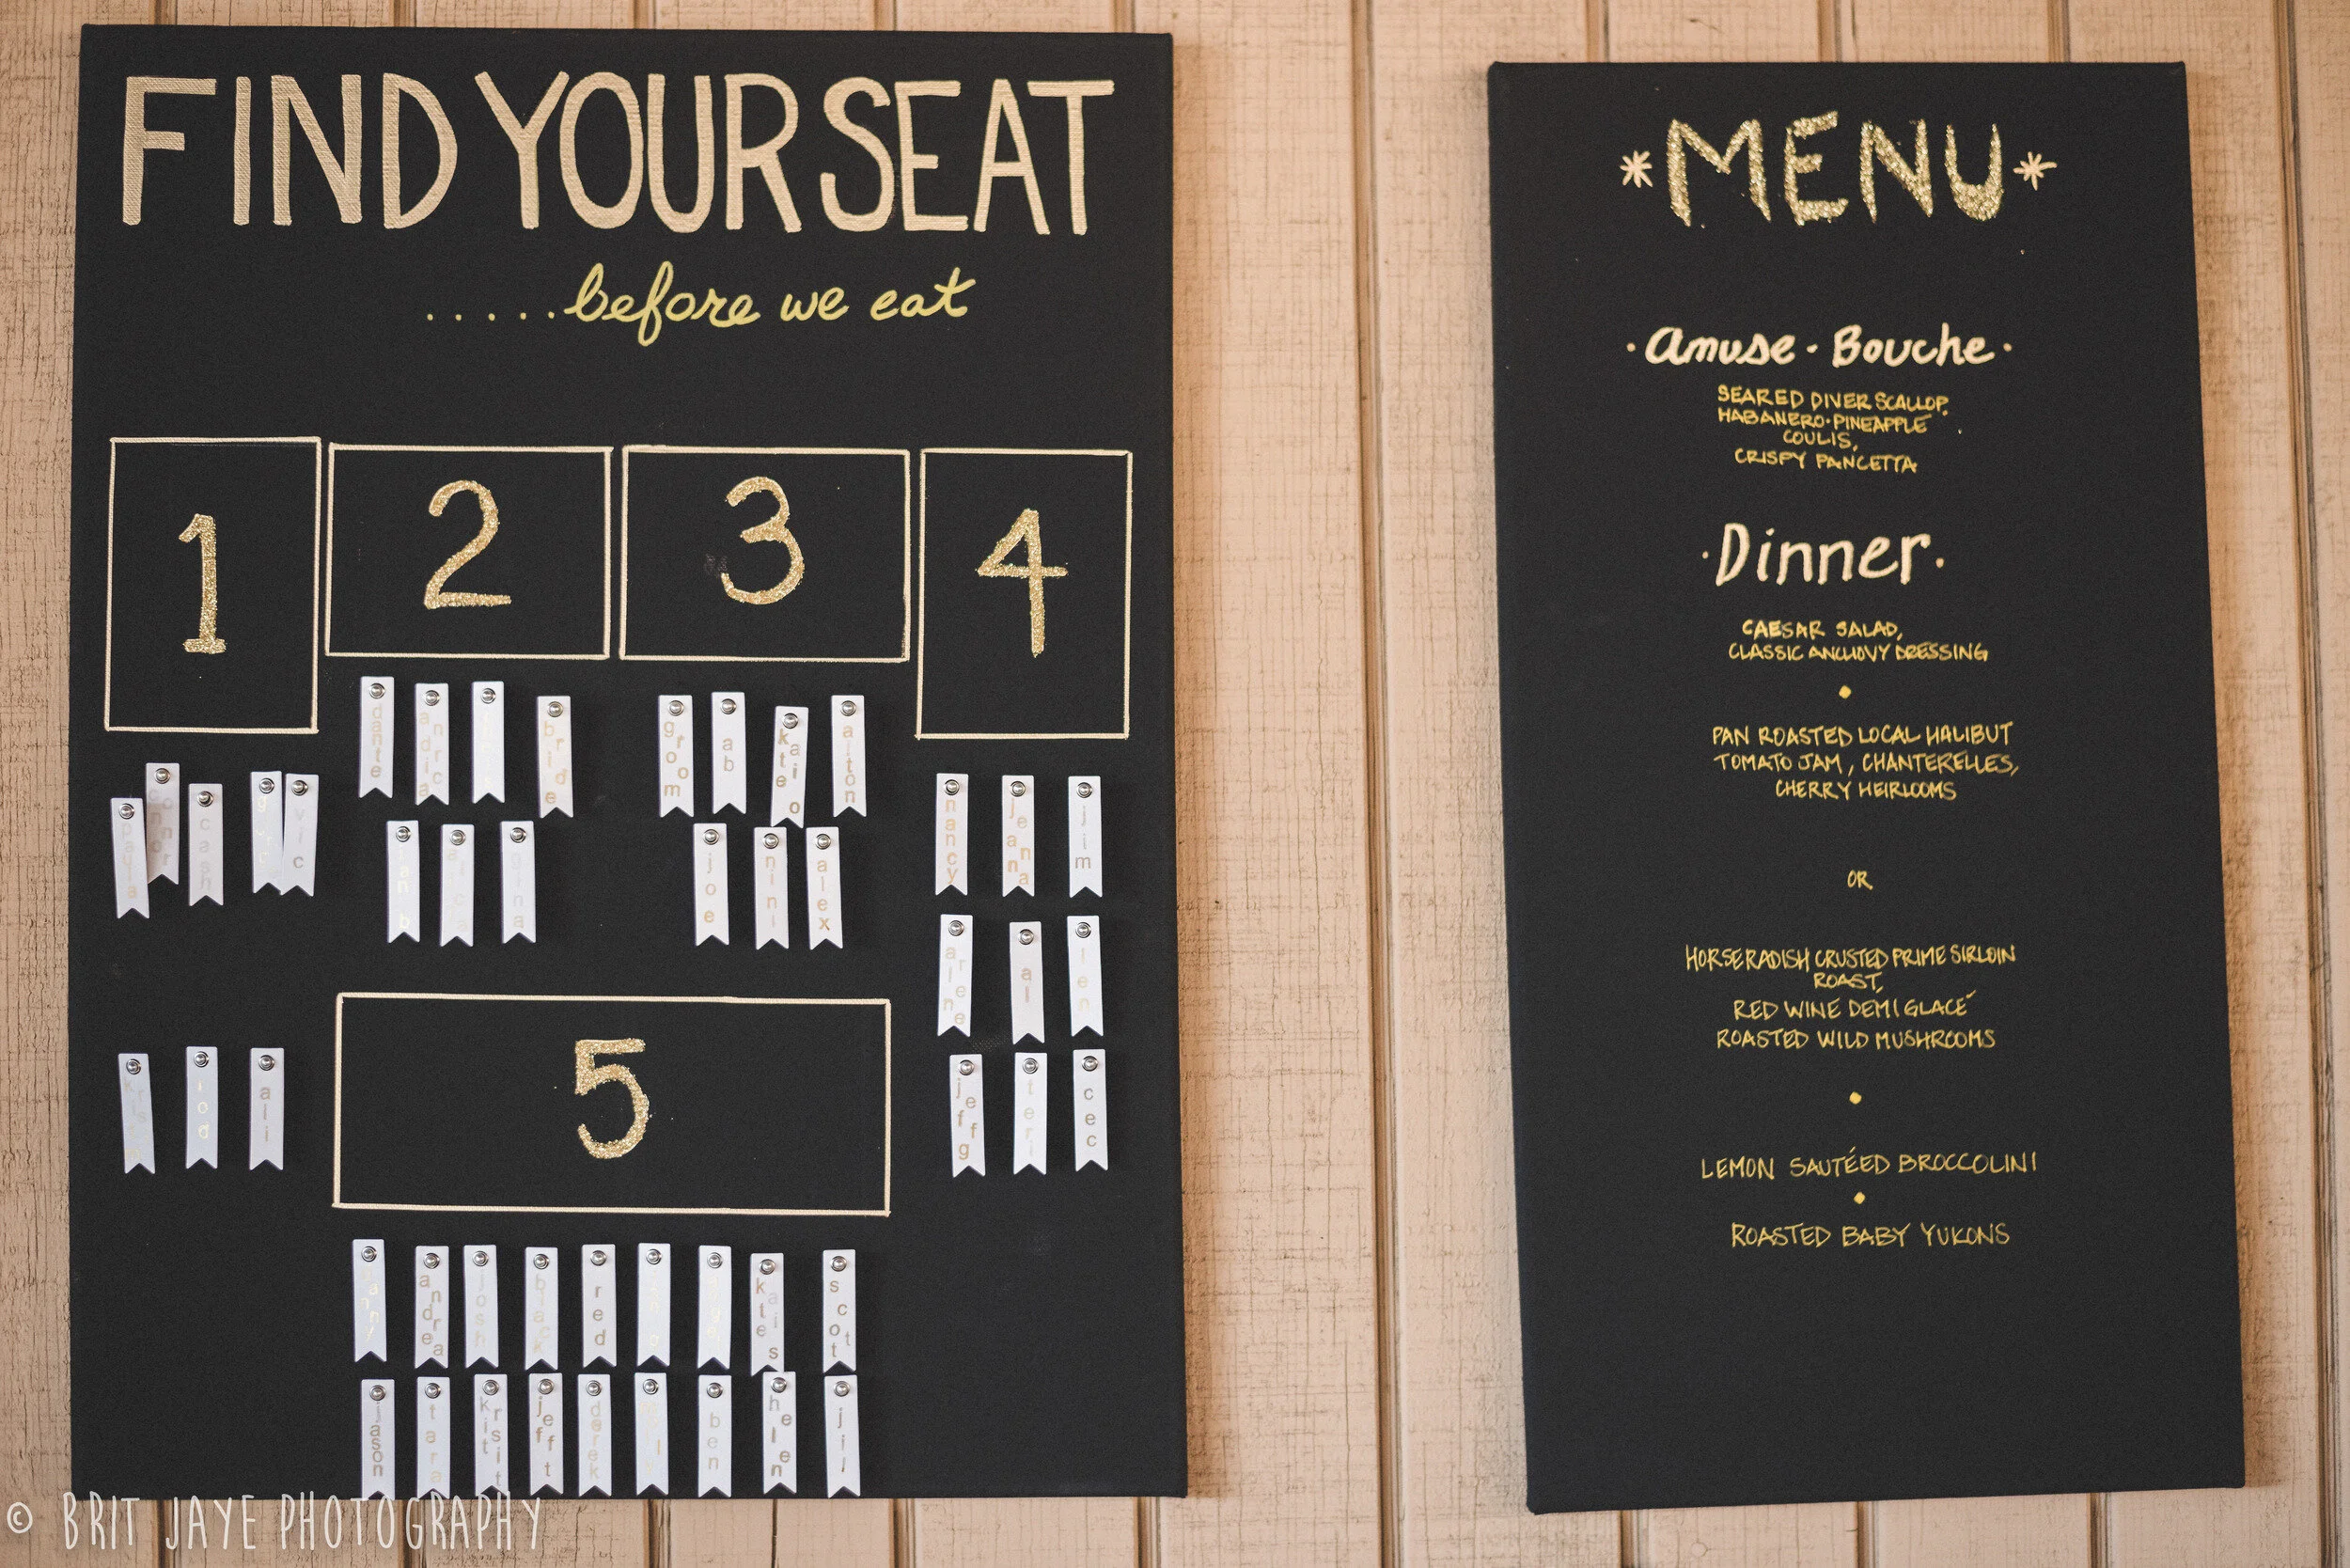 FIND YOUR SEAT
.....before we eat
1
2
3
4
dante
andrea
bride
groom
ab
alton
connor
paula
cash
vic
nancy
jeanna
jim
ian b
gina
joe
nini
alex
arlene
al
len
5
ali
jeff g
teri
cec
danny
andrea
josh
black
red
scott
jason
tara
jeff t
derek
ben
helen
jill
*MENU*
·Amuse·Bouche·
SEARED DIVER SCALLOP,
HABANERO·PINEAPPLE
COULIS,
CRISPY PANCETTA
·Dinner·
CAESAR SALAD,
CLASSIC ANCHOVY DRESSING
PAN ROASTED LOCAL HALIBUT
TOMATO JAM, CHANTERELLES,
CHERRY HEIRLOOMS
OR
HORSERADISH CRUSTED PRIME SIRLOIN
ROAST,
RED WINE DEMI GLACÉ
ROASTED WILD MUSHROOMS
LEMON SAUTÉED BROCCOLINI
ROASTED BABY YUKONS
© BRIT JAYE PHOTOGRAPHY